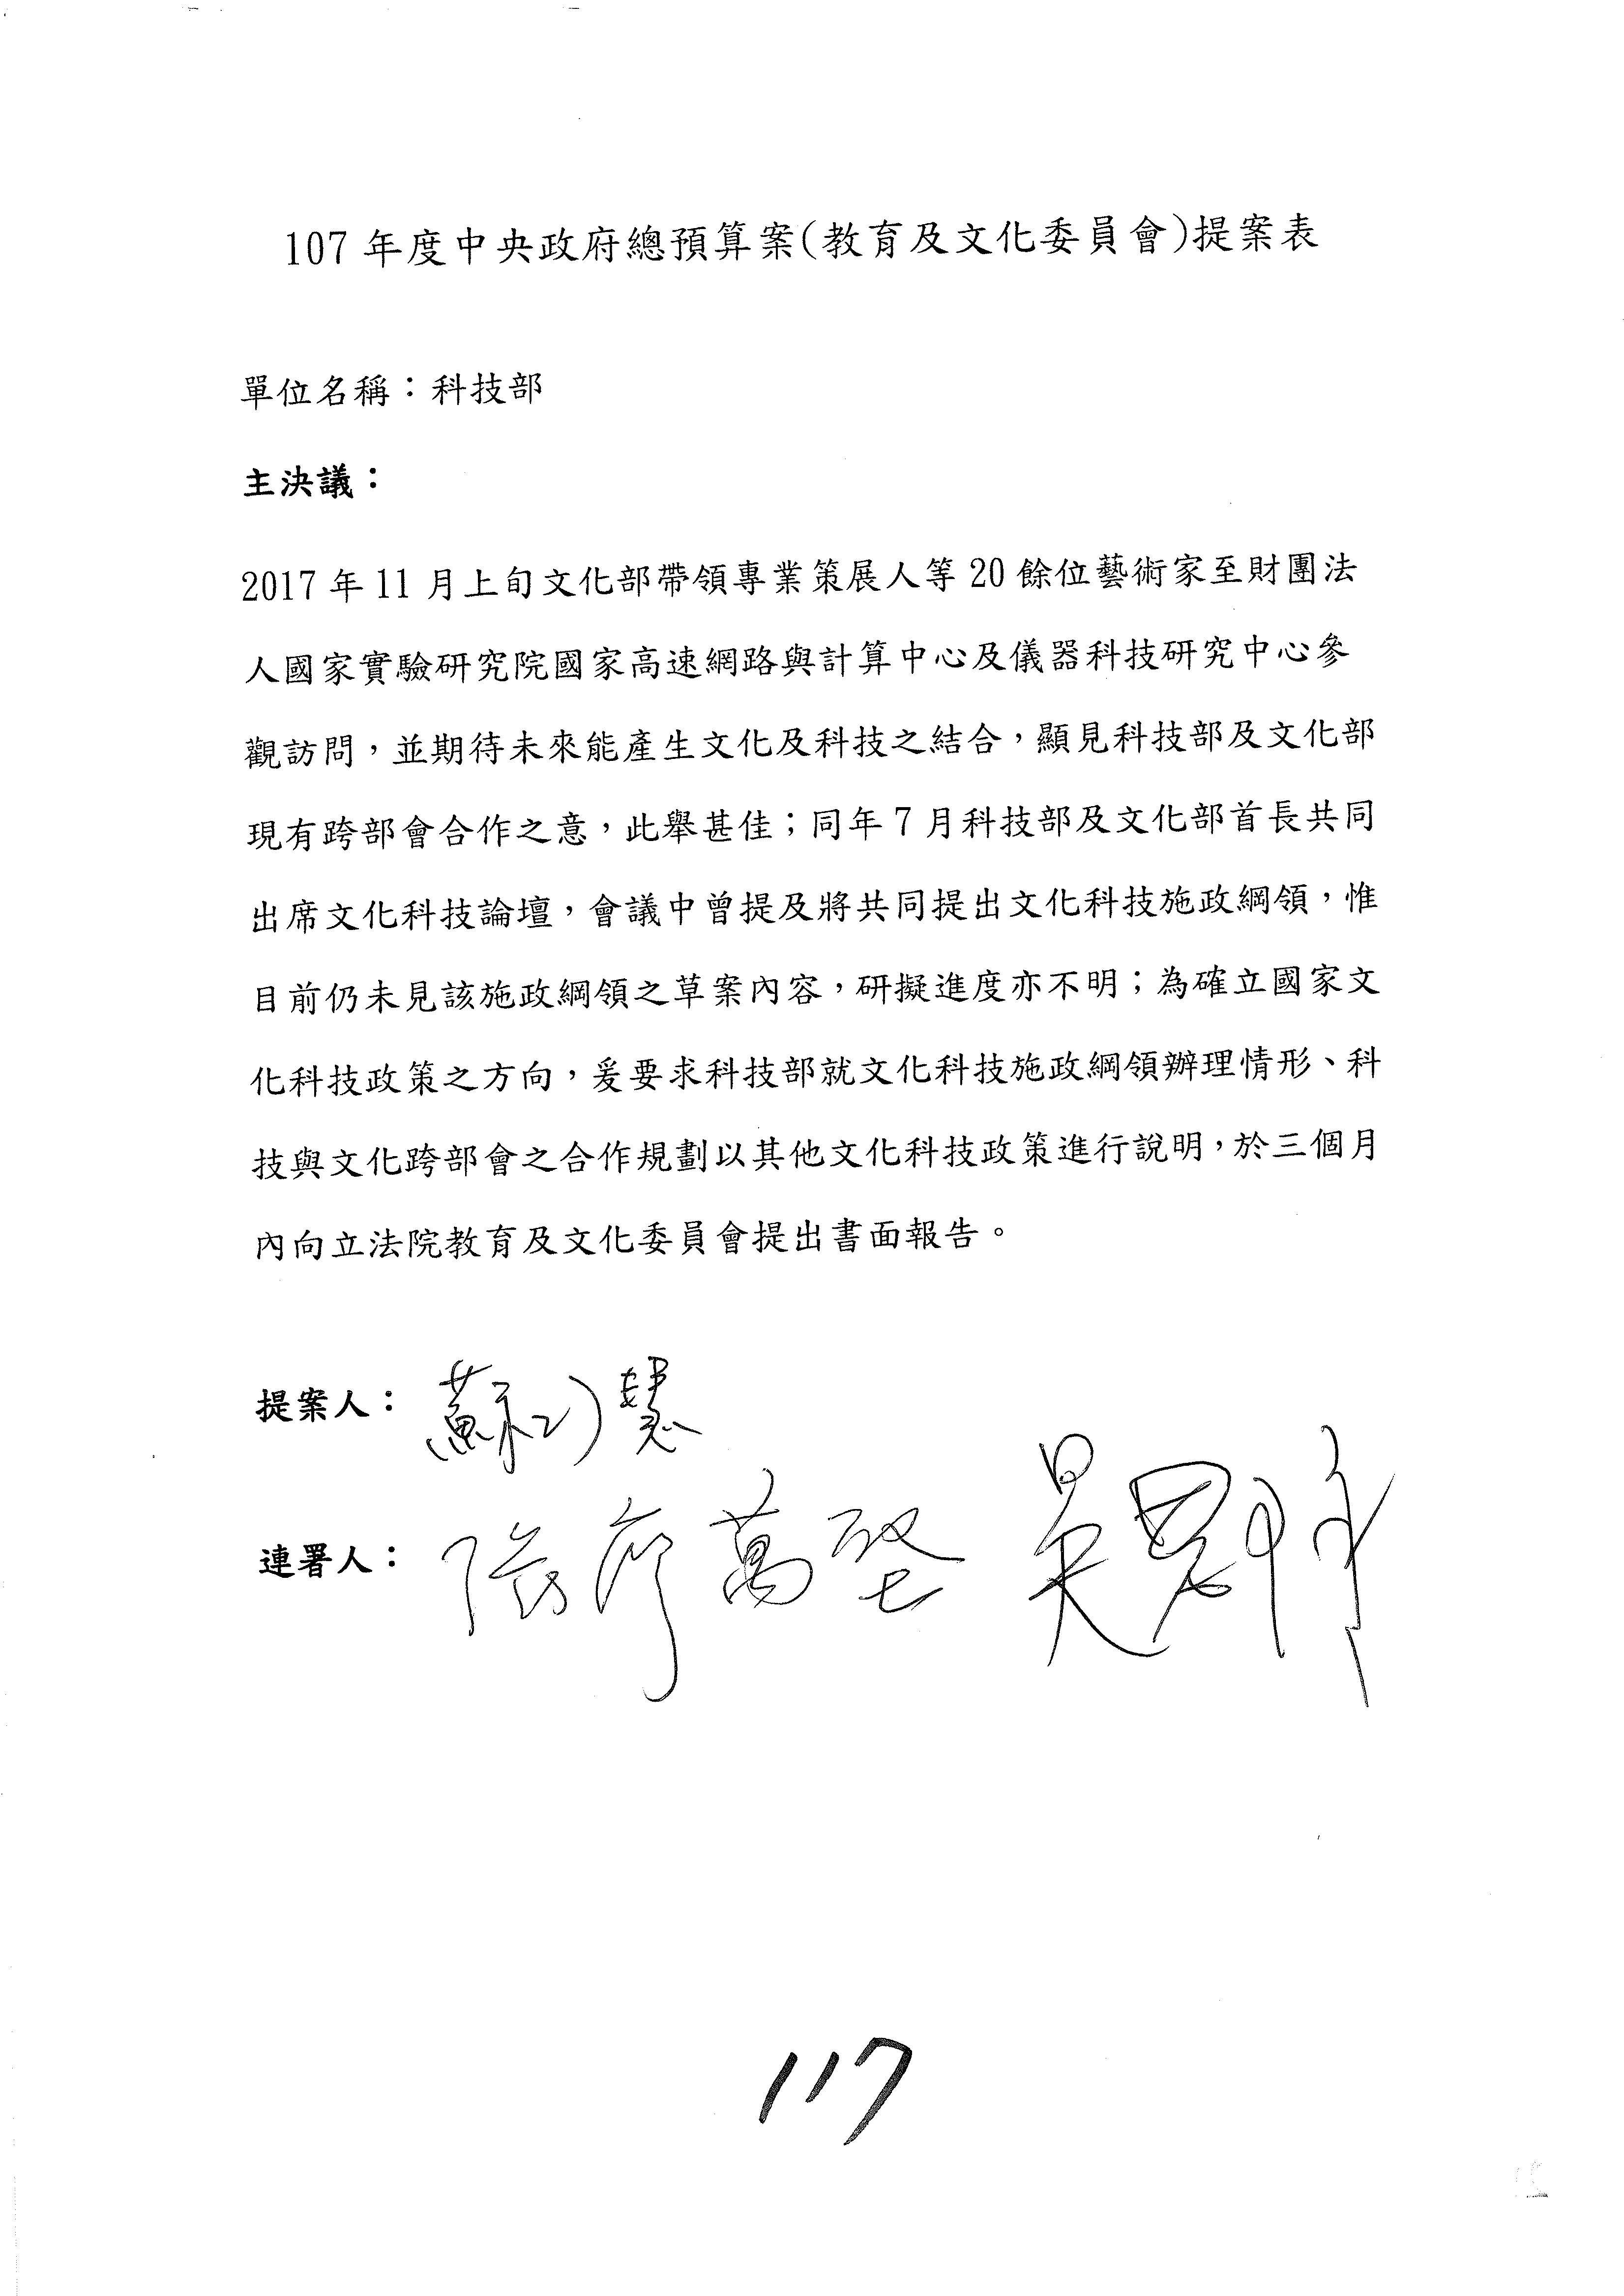 107 年度中央政府總預算案(教育及文化委員會)提案表
單位名稱：科技部
主決議：
2017 年 11 月上旬文化部帶領專業策展人等 20 餘位藝術家至財團法
人國家實驗研究院國家高速網路與計算中心及儀器科技研究中心參
觀訪問，並期待未來能產生文化及科技之結合，顯見科技部及文化部
現有跨部會合作之意，此舉甚佳；同年 7 月科技部及文化部首長共同
出席文化科技論壇，會議中曾提及將共同提出文化科技施政綱領，惟
目前仍未見該施政綱領之草案內容，研擬進度亦不明；為確立國家文
化科技政策之方向，爰要求科技部就文化科技施政綱領辦理情形、科
技與文化跨部會之合作規劃以其他文化科技政策進行說明，於三個月
內向立法院教育及文化委員會提出書面報告。
提案人：蘇巧慧
連署人：張廖萬堅 吳思瑤
117